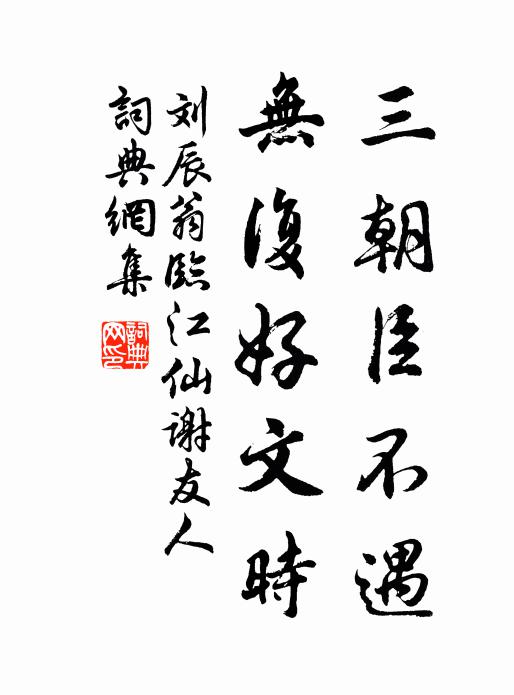 三朝臣不遇
無復好文時
刘辰翁臨江仙谢友人
詞典網集
詞典网印